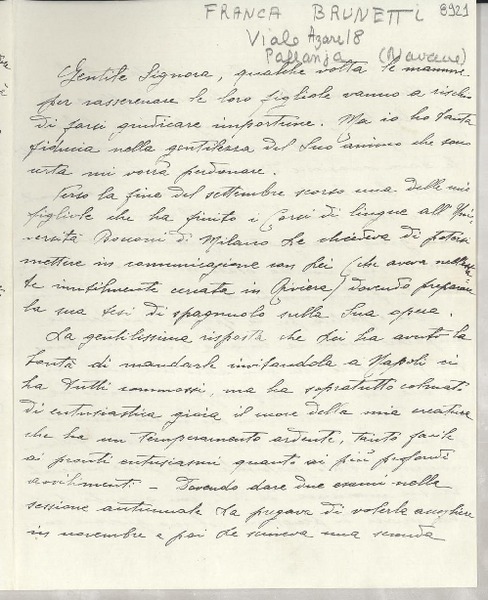 FRANCA BRUNETTI 8921
Viale Azari 8
Pallanza (Novara)
Gentile Signora, qualche volta le mamme
per rasserenare le loro figliole vanno a rischio
di farsi giudicare importune. Ma io ho tanta
fiducia nella gentilezza del Suo animo che sono
certa mi vorrà perdonare.
Verso la fine del settembre scorso una delle mie
figliole che ha finito i Corsi di lingue all'Uni-
versità Bocconi di Milano Le chiedeva di potersi
mettere in comunicazione con Lei (che aveva nell'estate
inutilmente cercata in Riviera) dovendo preparare
la sua tesi di spagnuolo sulla Sua opera.
La gentilissima risposta che Lei ha avuto la
bontà di mandarle invitandola a Napoli ci
ha tutti commossi, ma ha sopratutto colmato
di entusiastica gioia il cuore della mia creatura
che ha un temperamento ardente, tanto facile
ai pronti entusiasmi quanto ai più profondi
avvilimenti - Dovendo dare due esami nella
sessione autunnale La pregava di volerla accogliere
in novembre e poi Le scriveva una seconda